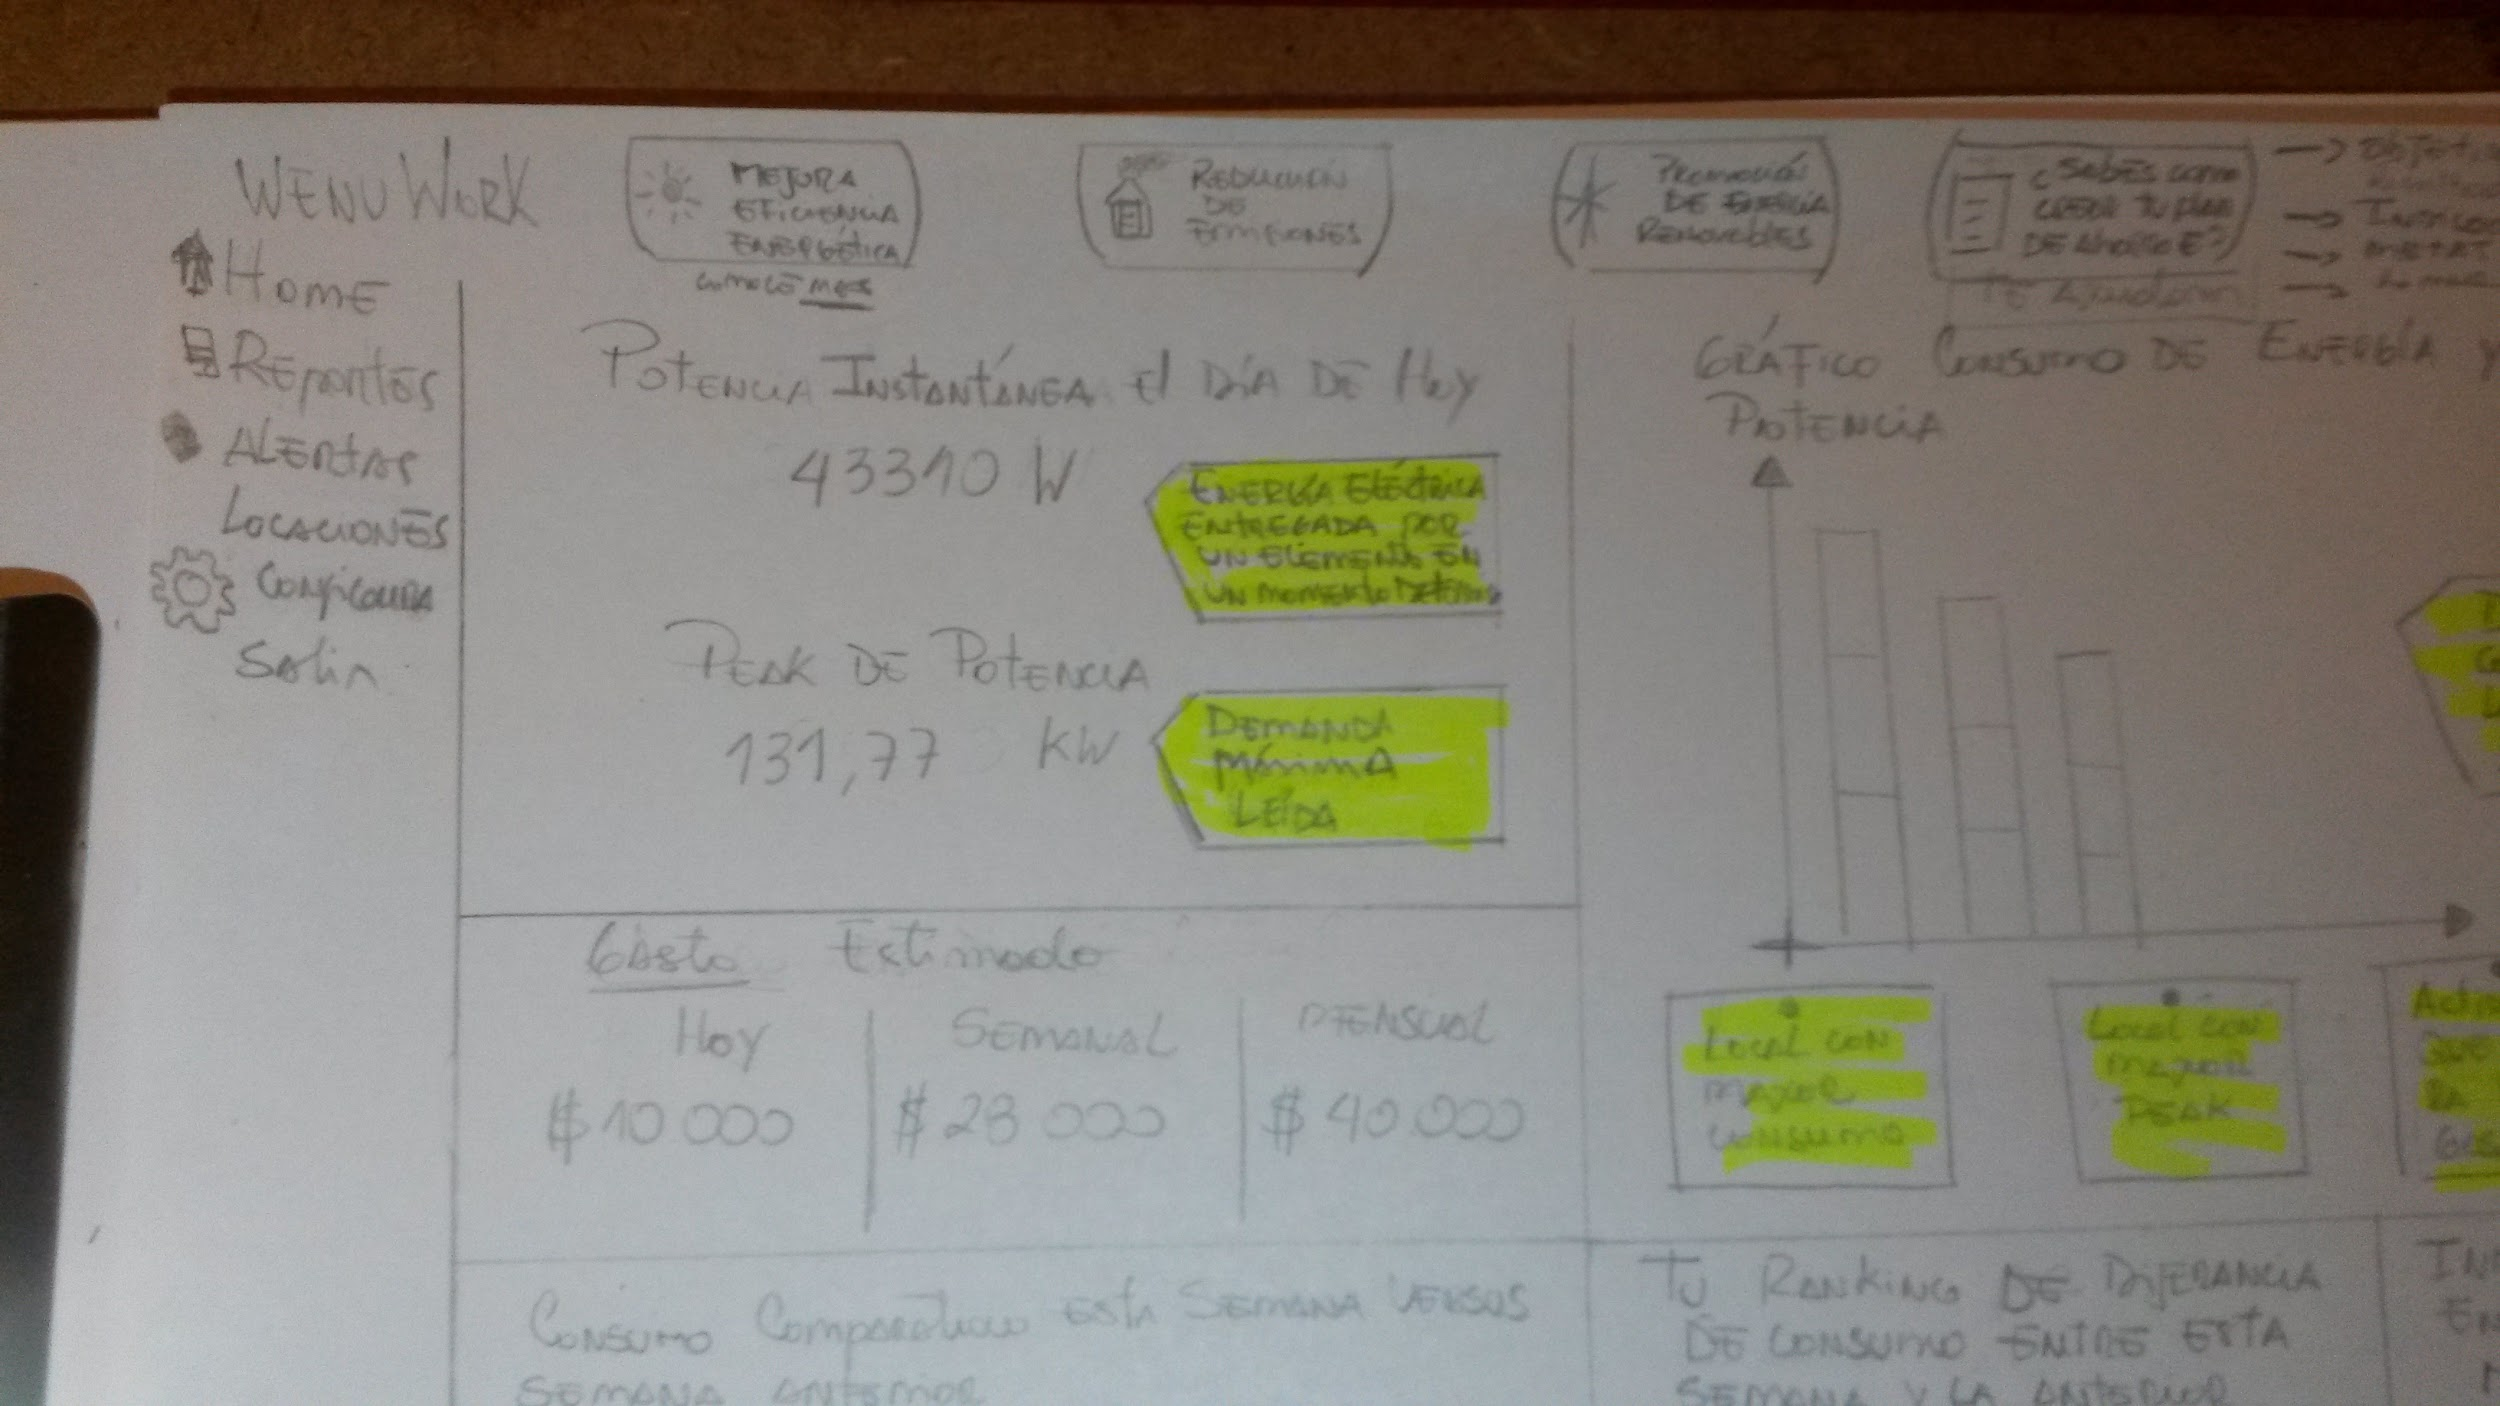 WENU WORK
Home
Reportes
Alertas
Locaciones
Configura
Salir
MEJORA
EFICIENCIA
ENERGÉTICA
CONOCE MES
REDUCCIÓN
DE
EMISIONES
PROMOCIÓN
DE ENERGÍA
RENOVABLES
¿SABES COMO
CREAR TU PLAN
DE AHORRO E?
TE AYUDAM
POTENCIA INSTANTÁNEA El DÍA DE Hoy
43310 W
ENERGÍA ELÉCTRICA
ENTREGADA POR
UN ELEMENTO EN
UN MOMENTO
PEAK DE POTENCIA
131,77 KW
DEMANDA
MÁXIMA
LEÍDA
GRÁFICO CONSUMO DE ENERGÍA Y
POTENCIA
LOCAL CON
MAYOR
CONSUMO
LOCAL CON
MAYOR
PEAK
Gasto Estimado
Hoy
$ 10 000
SEMANAL
$ 28 000
MENSUAL
$ 40 000
CONSUMO Comparativo ESTA SEMANA VERSUS
SEMANA ANTERIOR
TU RANKING DE DIFERANCIA
DE CONSUMO ENTRE ESTA
SEMANA Y LA ANTERIOR